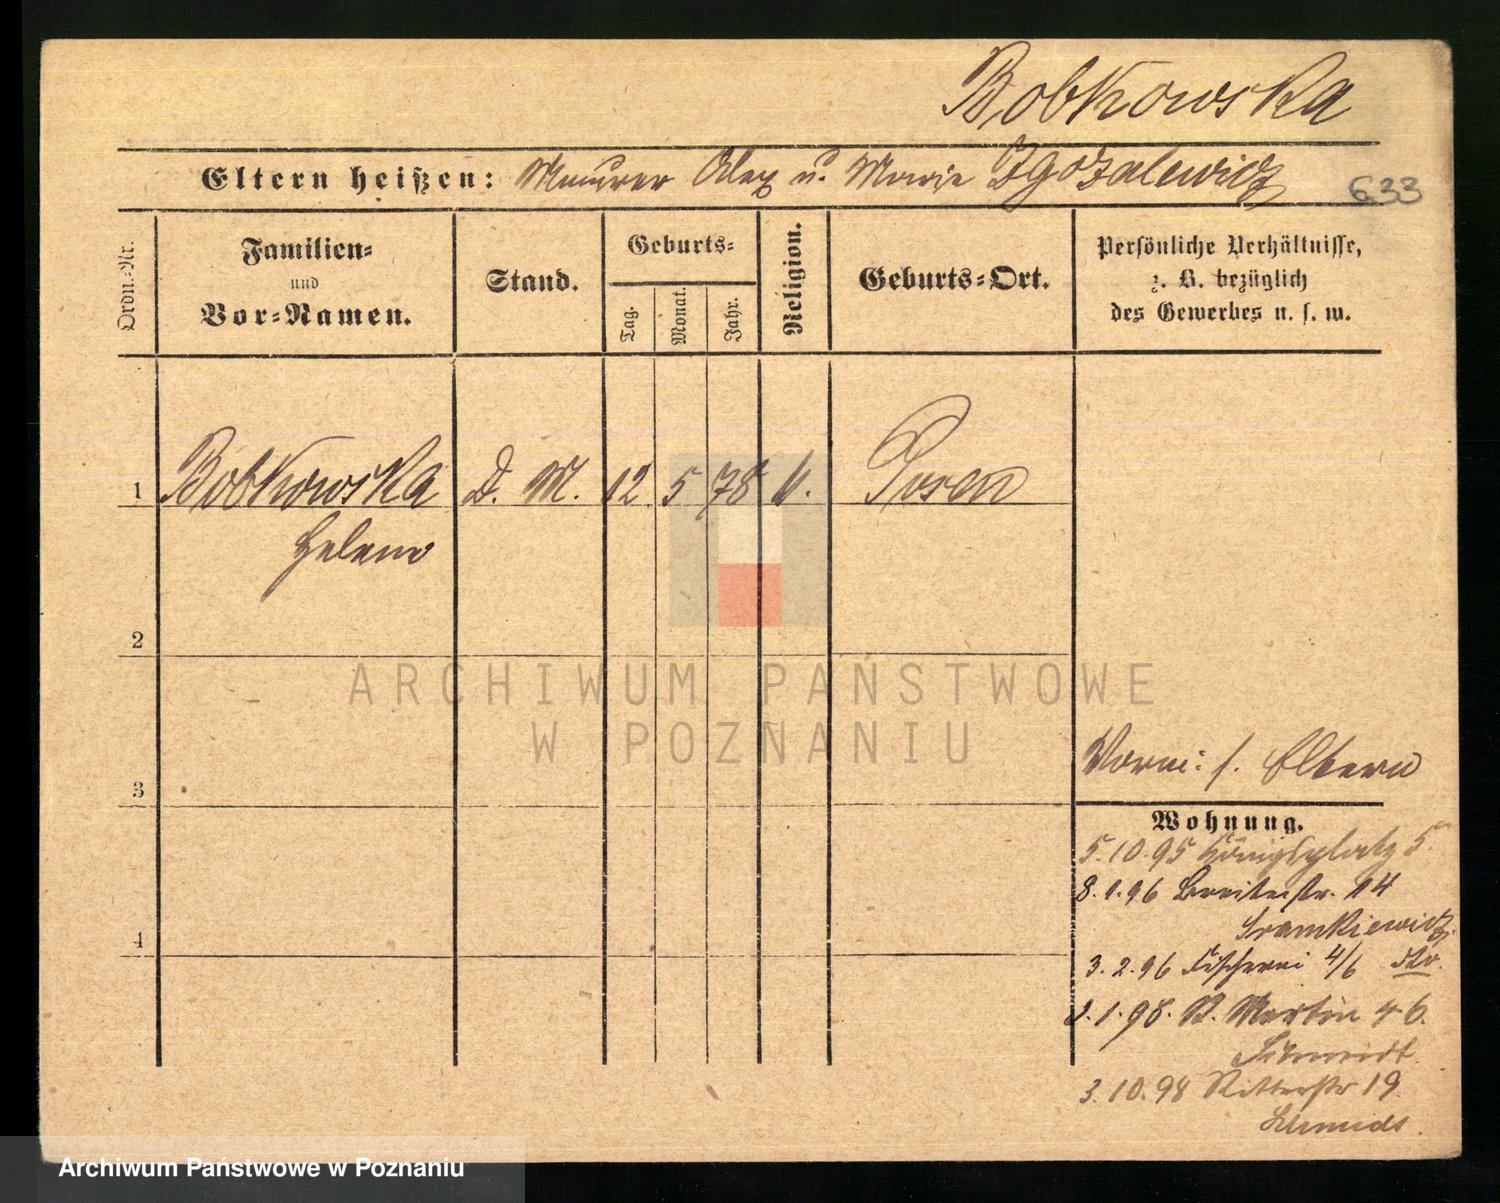 Bobkowska
Eltern heißen: Maurer Alex u. Marie Zgozalewicz
633
Ordn.-Nr.
Familien-
und
Vor-Namen.
Stand.
Geburts-
Tag.
Monat.
Jahr.
Religion.
Geburts-Ort.
Persönliche Verhältnisse,
z. B. bezüglich
des Gewerbes u. s. w.
1 Bobkowska D. M. 12 5 78 k. Posen
Helene
2
ARCHIWUM PAŃSTWOWE
W POZNANIU
3
4
Vorm: s. Eltern
Wohnung.
5.10.95 Königsplatz 5.
8.1.96 Breitestr. 14
Sramkiewicz
3.2.96 Fischerei 4/6
2.1.98. St. Martin 46.
Schmidt
3.10.98 Ritterstr 19
Schmidt.
Archiwum Państwowe w Poznaniu